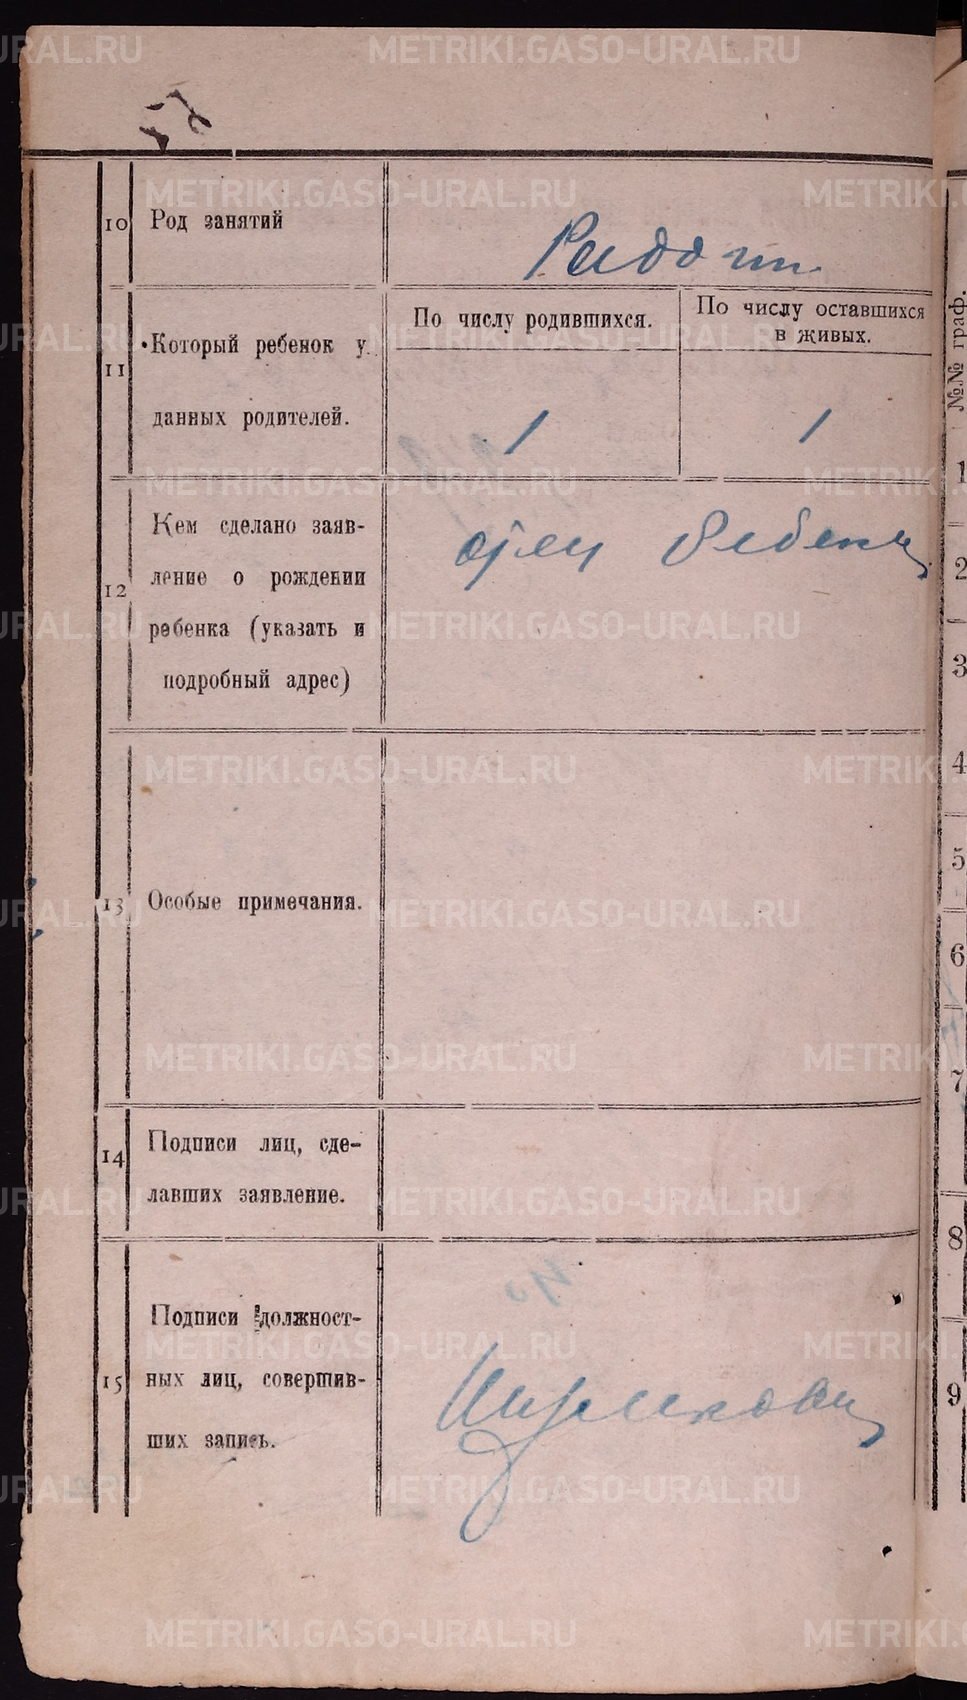 10 Род занятий
11 Который ребенок у
данных родителей.
По числу родившихся.
По числу оставшихся
в живых.
1
1
12 Кем сделано заяв-
ление о рождении
ребенка (указать и
подробный адрес)
отец
13 Особые примечания.
14 Подписи лиц, сде-
лавших заявление.
15 Подписи должност-
ных лиц, совершив-
ших запись.
№№ граф.
1
2
3
4
5
6
7
8
9
METRIKI.GASO-URAL.RU